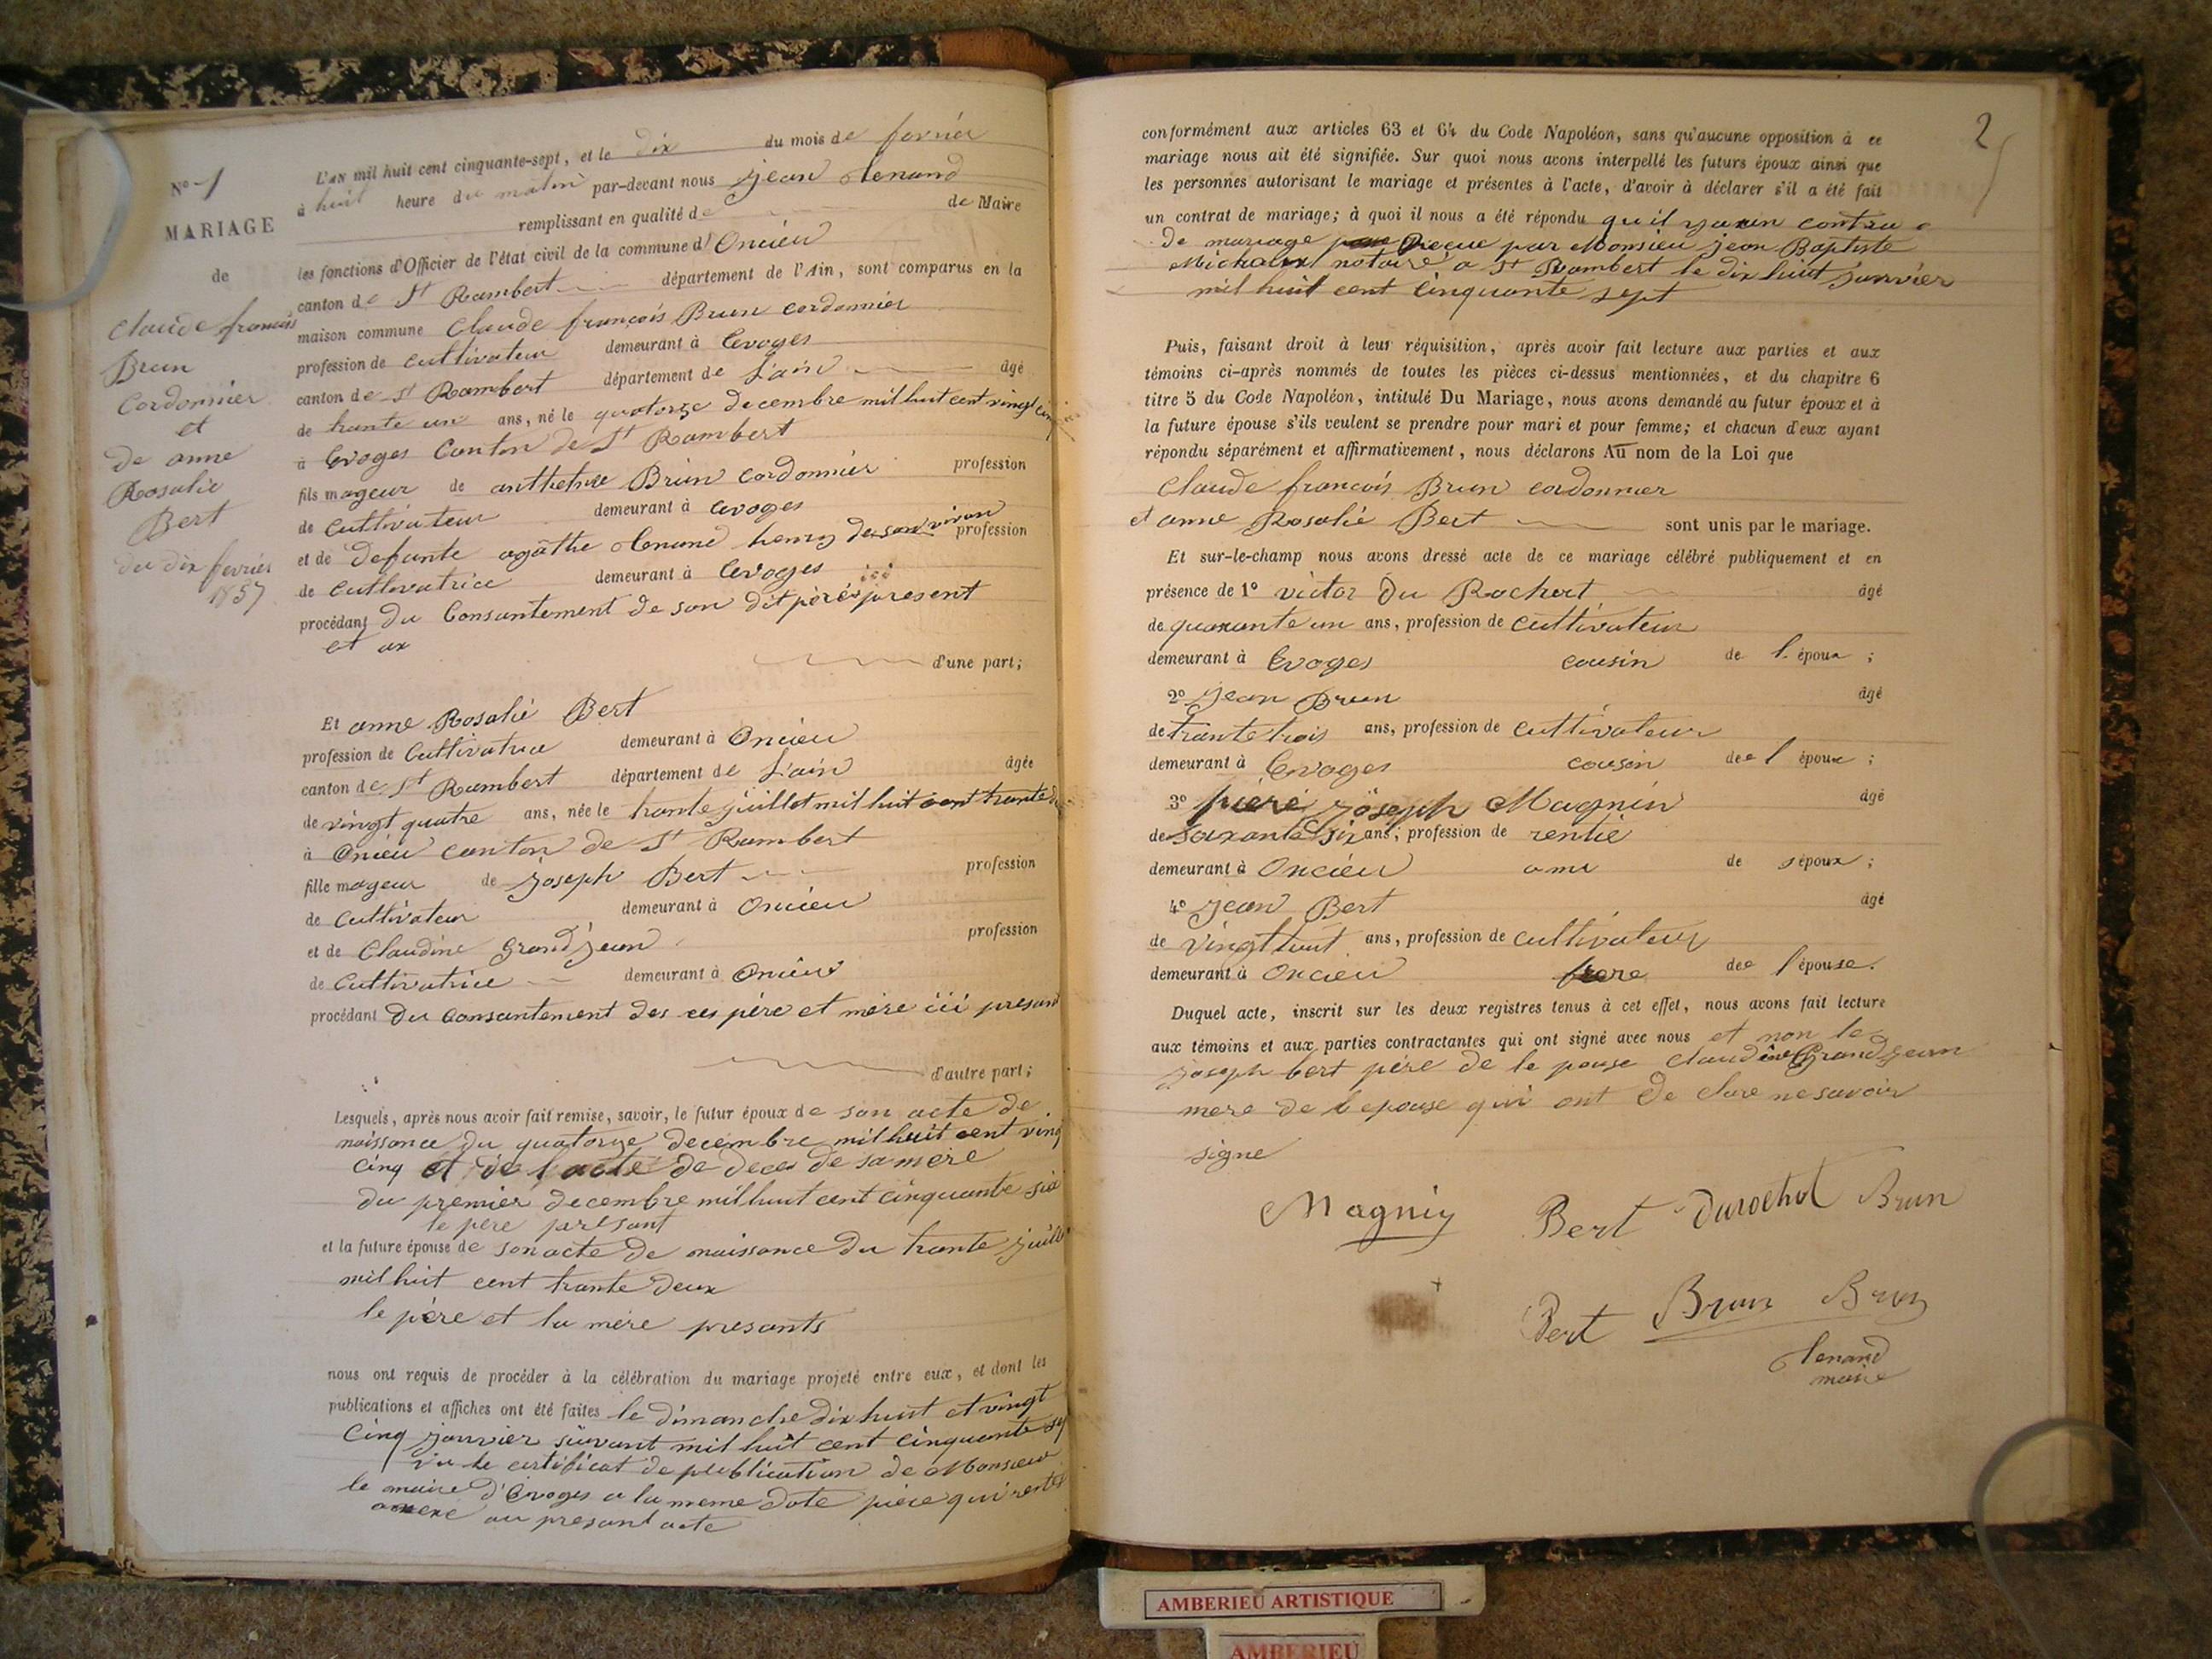 N° 1
MARIAGE
de
Claude francois
Brun
Cordonnier
et
de anne
Rosalie
Bert
du dix fevrier
1857
L'AN mil huit cent cinquante-sept, et le dix du mois de fevrier
à huit heure du matin par-devant nous jean tenand
remplissant en qualité de de Maire
les fonctions d'Officier de l'état civil de la commune d' Oncieu
canton de St Rambert département de l'Ain, sont comparus en la
maison commune Claude françois Brun cordonnier
profession de cultivateur demeurant à Evoges
canton de St Rambert département de L'ain âgé
de trante un ans, né le quatorze decembre mil huit cent vingt cinq
à Evoges Canton de St Rambert
fils mageur de Brun cordonnier profession
de cultivateur demeurant à Evoges
et de defunte agathe tenand henry de son vivan profession
de cultivatrice demeurant à Evoges
procédant du Consantement de son dit père ici present
et ax
d'une part;
Et anne Rosalie Bert
profession de Cultivatrice demeurant à Oncieu
canton de St Rambert département de L'ain âgée
de vingt quatre ans, née le trante juillet mil huit cent trante
à Oncieu canton de St Rambert
fille mageur de joseph Bert profession
de cultivateur demeurant à Oncieu
et de Claudine Grand'jean profession
de Cultivatrice demeurant à Oncieu
procédant du consantement des ces père et mère ici presant
d'autre part;
Lesquels, après nous avoir fait remise, savoir, le futur époux de son acte de
naissance du quatorze decembre mil huit cent vingt
cinq et de l'acte de deces de sa mère
du premier decembre mil huit cent cinquante six
le père présant
et la future épouse de son acte de naissance du trante juillet
mil huit cent trante deux
le père et la mère presants
nous ont requis de procéder à la célébration du mariage projeté entre eux, et dont les
publications et affiches ont été faites le dimanche dix huit et vingt
cinq janvier suivant mil huit cent cinquante sept
vu le certificat de publication de Monsieur
le maire d'Evoges a la meme date pièce qui restes
anexé au presant acte
2
conformément aux articles 63 et 64 du Code Napoléon, sans qu'aucune opposition à ce
mariage nous ait été signifiée. Sur quoi nous avons interpellé les futurs époux ainsi que
les personnes autorisant le mariage et présentes à l'acte, d'avoir à déclarer s'il a été fait
un contrat de mariage; à quoi il nous a été répondu qu'il y a un contra
de mariage Recue par Monsieu jean Baptiste
notaire a St Rambert le dix huit janvier
mil huit cent cinquante sept
Puis, faisant droit à leur réquisition, après avoir fait lecture aux parties et aux
témoins ci-après nommés de toutes les pièces ci-dessus mentionnées, et du chapitre 6
titre 5 du Code Napoléon, intitulé Du Mariage, nous avons demandé au futur époux et à
la future épouse s'ils veulent se prendre pour mari et pour femme; et chacun d'eux ayant
répondu séparément et affirmativement, nous déclarons Au nom de la Loi que
Claude françois Brun cordonnier
et anne Rosalie Bert sont unis par le mariage.
Et sur-le-champ nous avons dressé acte de ce mariage célébré publiquement et en
présence de 1° victor du Rochert âgé
de quarante un ans, profession de cultivateur
demeurant à Evoges cousin de l époux ;
2° jean Brun âgé
de trante trois ans, profession de cultivateur
demeurant à Evoges cousin de l époux ;
3° piere joseph Magnin âgé
de soixante six ans, profession de rentie
demeurant à Oncieu ami de l'époux ;
4° jean Bert âgé
de vingt huit ans, profession de cultivateur
demeurant à Oncieu frere de l'épouse.
Duquel acte, inscrit sur les deux registres tenus à cet effet, nous avons fait lecture
aux témoins et aux parties contractantes qui ont signé avec nous et non le
joseph bert père de le pouse claudine Grandjean
mere de l epouse qui ont de clare ne savoir
signe
Magnin Bert durochat Brun
Bert Brun Brun
tenand
maire
AMBERIEU ARTISTIQUE
AMBERIEU